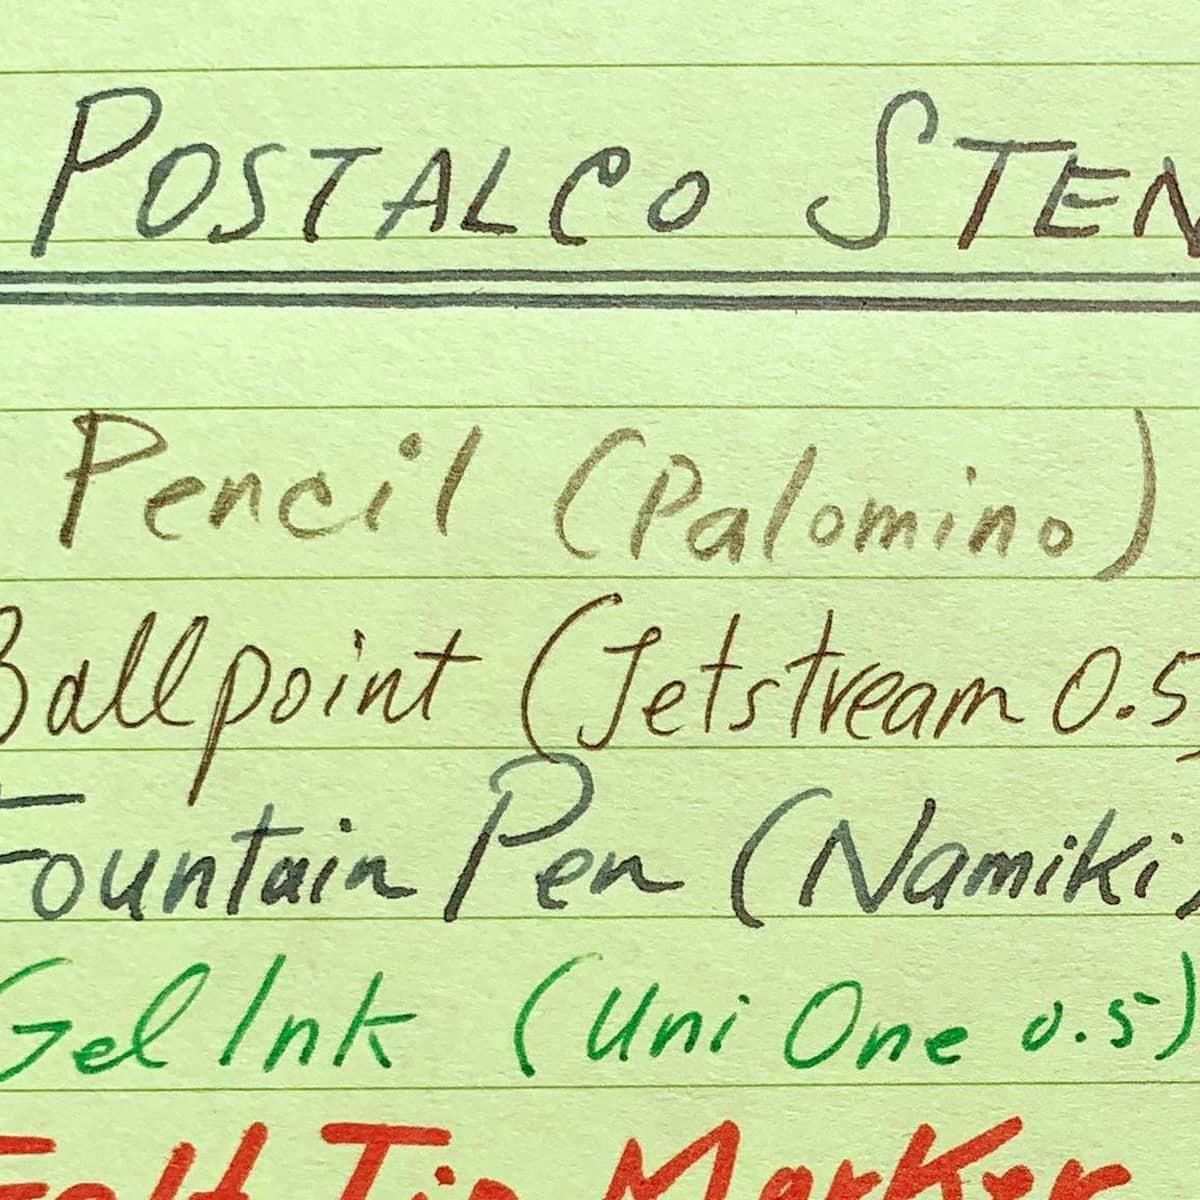 POSTALCO STEN
Pencil (Palomino)
Ballpoint (Jetstream 0.5
Fountain Pen (Namiki)
Gel Ink (Uni One 0.5)
Felt Tip Marker